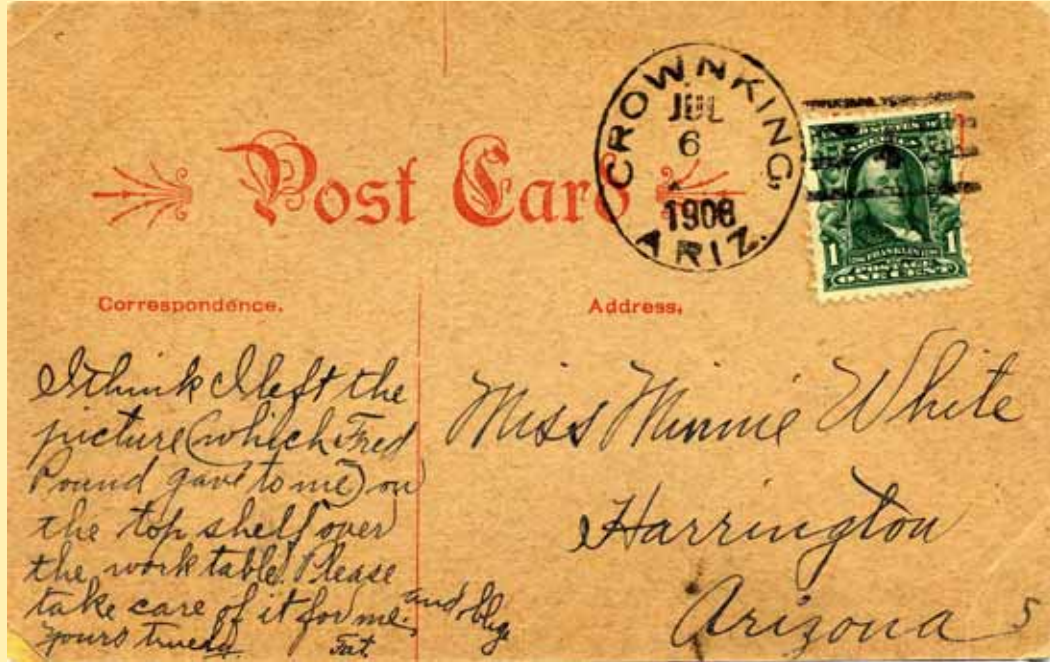 Post Card
CROWN KING,
JUL
6
1908
ARIZ.
UNITED STATES OF
AMERICA
1 FRANKLIN 1
POSTAGE
ONE CENT
Correspondence.
Address.
I think I left the
picture (which Fred
Pound gave to me) on
the top shelf over
the work table. Please
take care of it for me, and oblige
yours truly
Fat.
Miss Minnie White
Harrington
Arizona
5